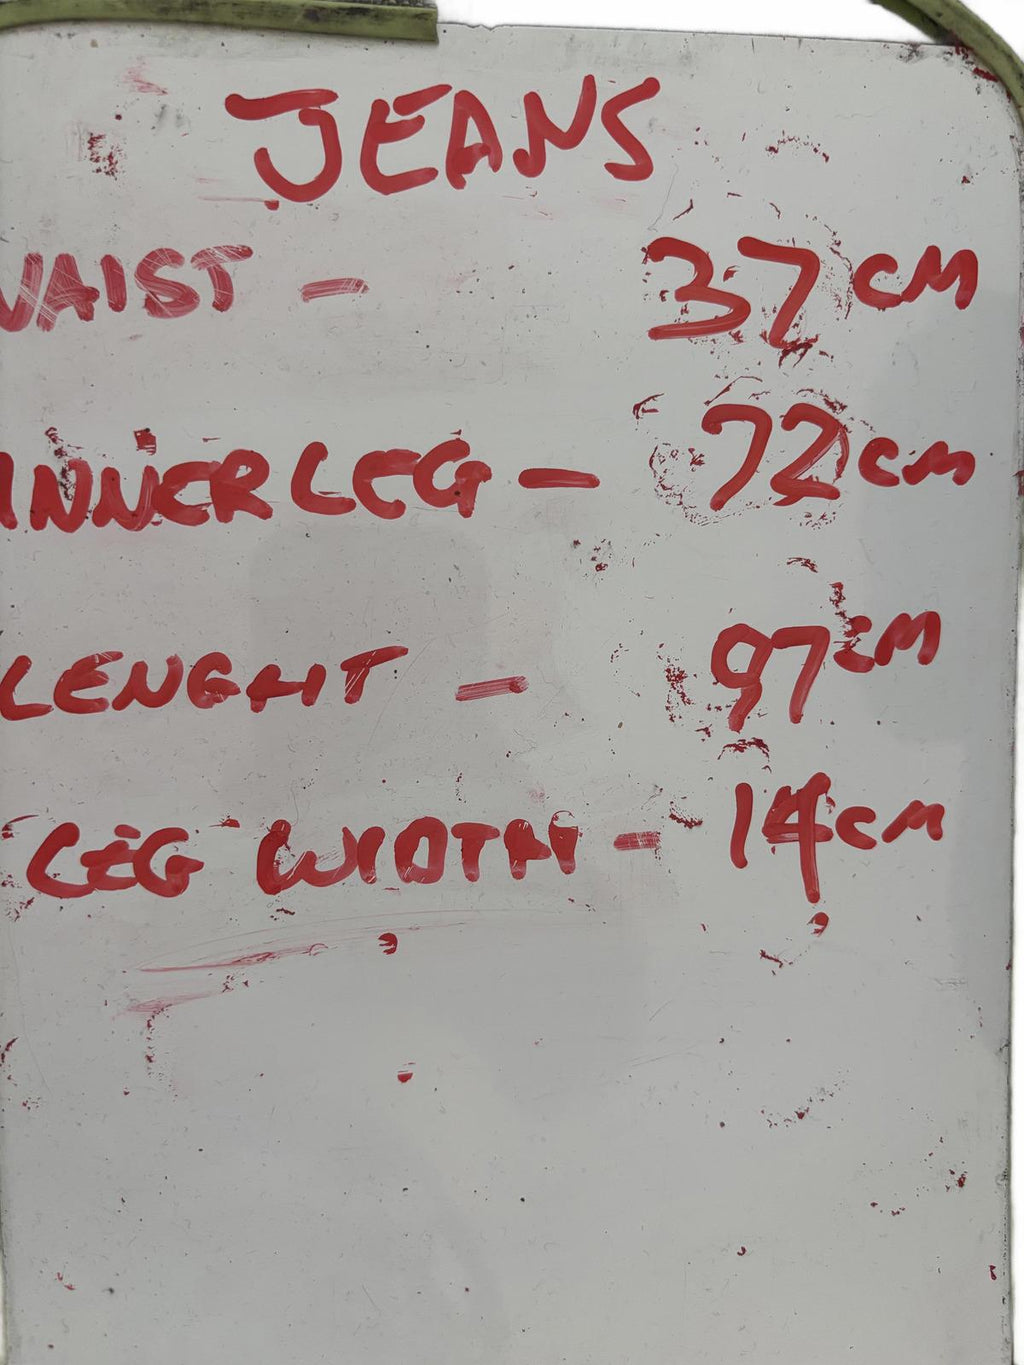 JEANS
WAIST - 37CM
INNER LEG - 72CM
LENGHT - 97CM
LEG WIDTH - 14CM